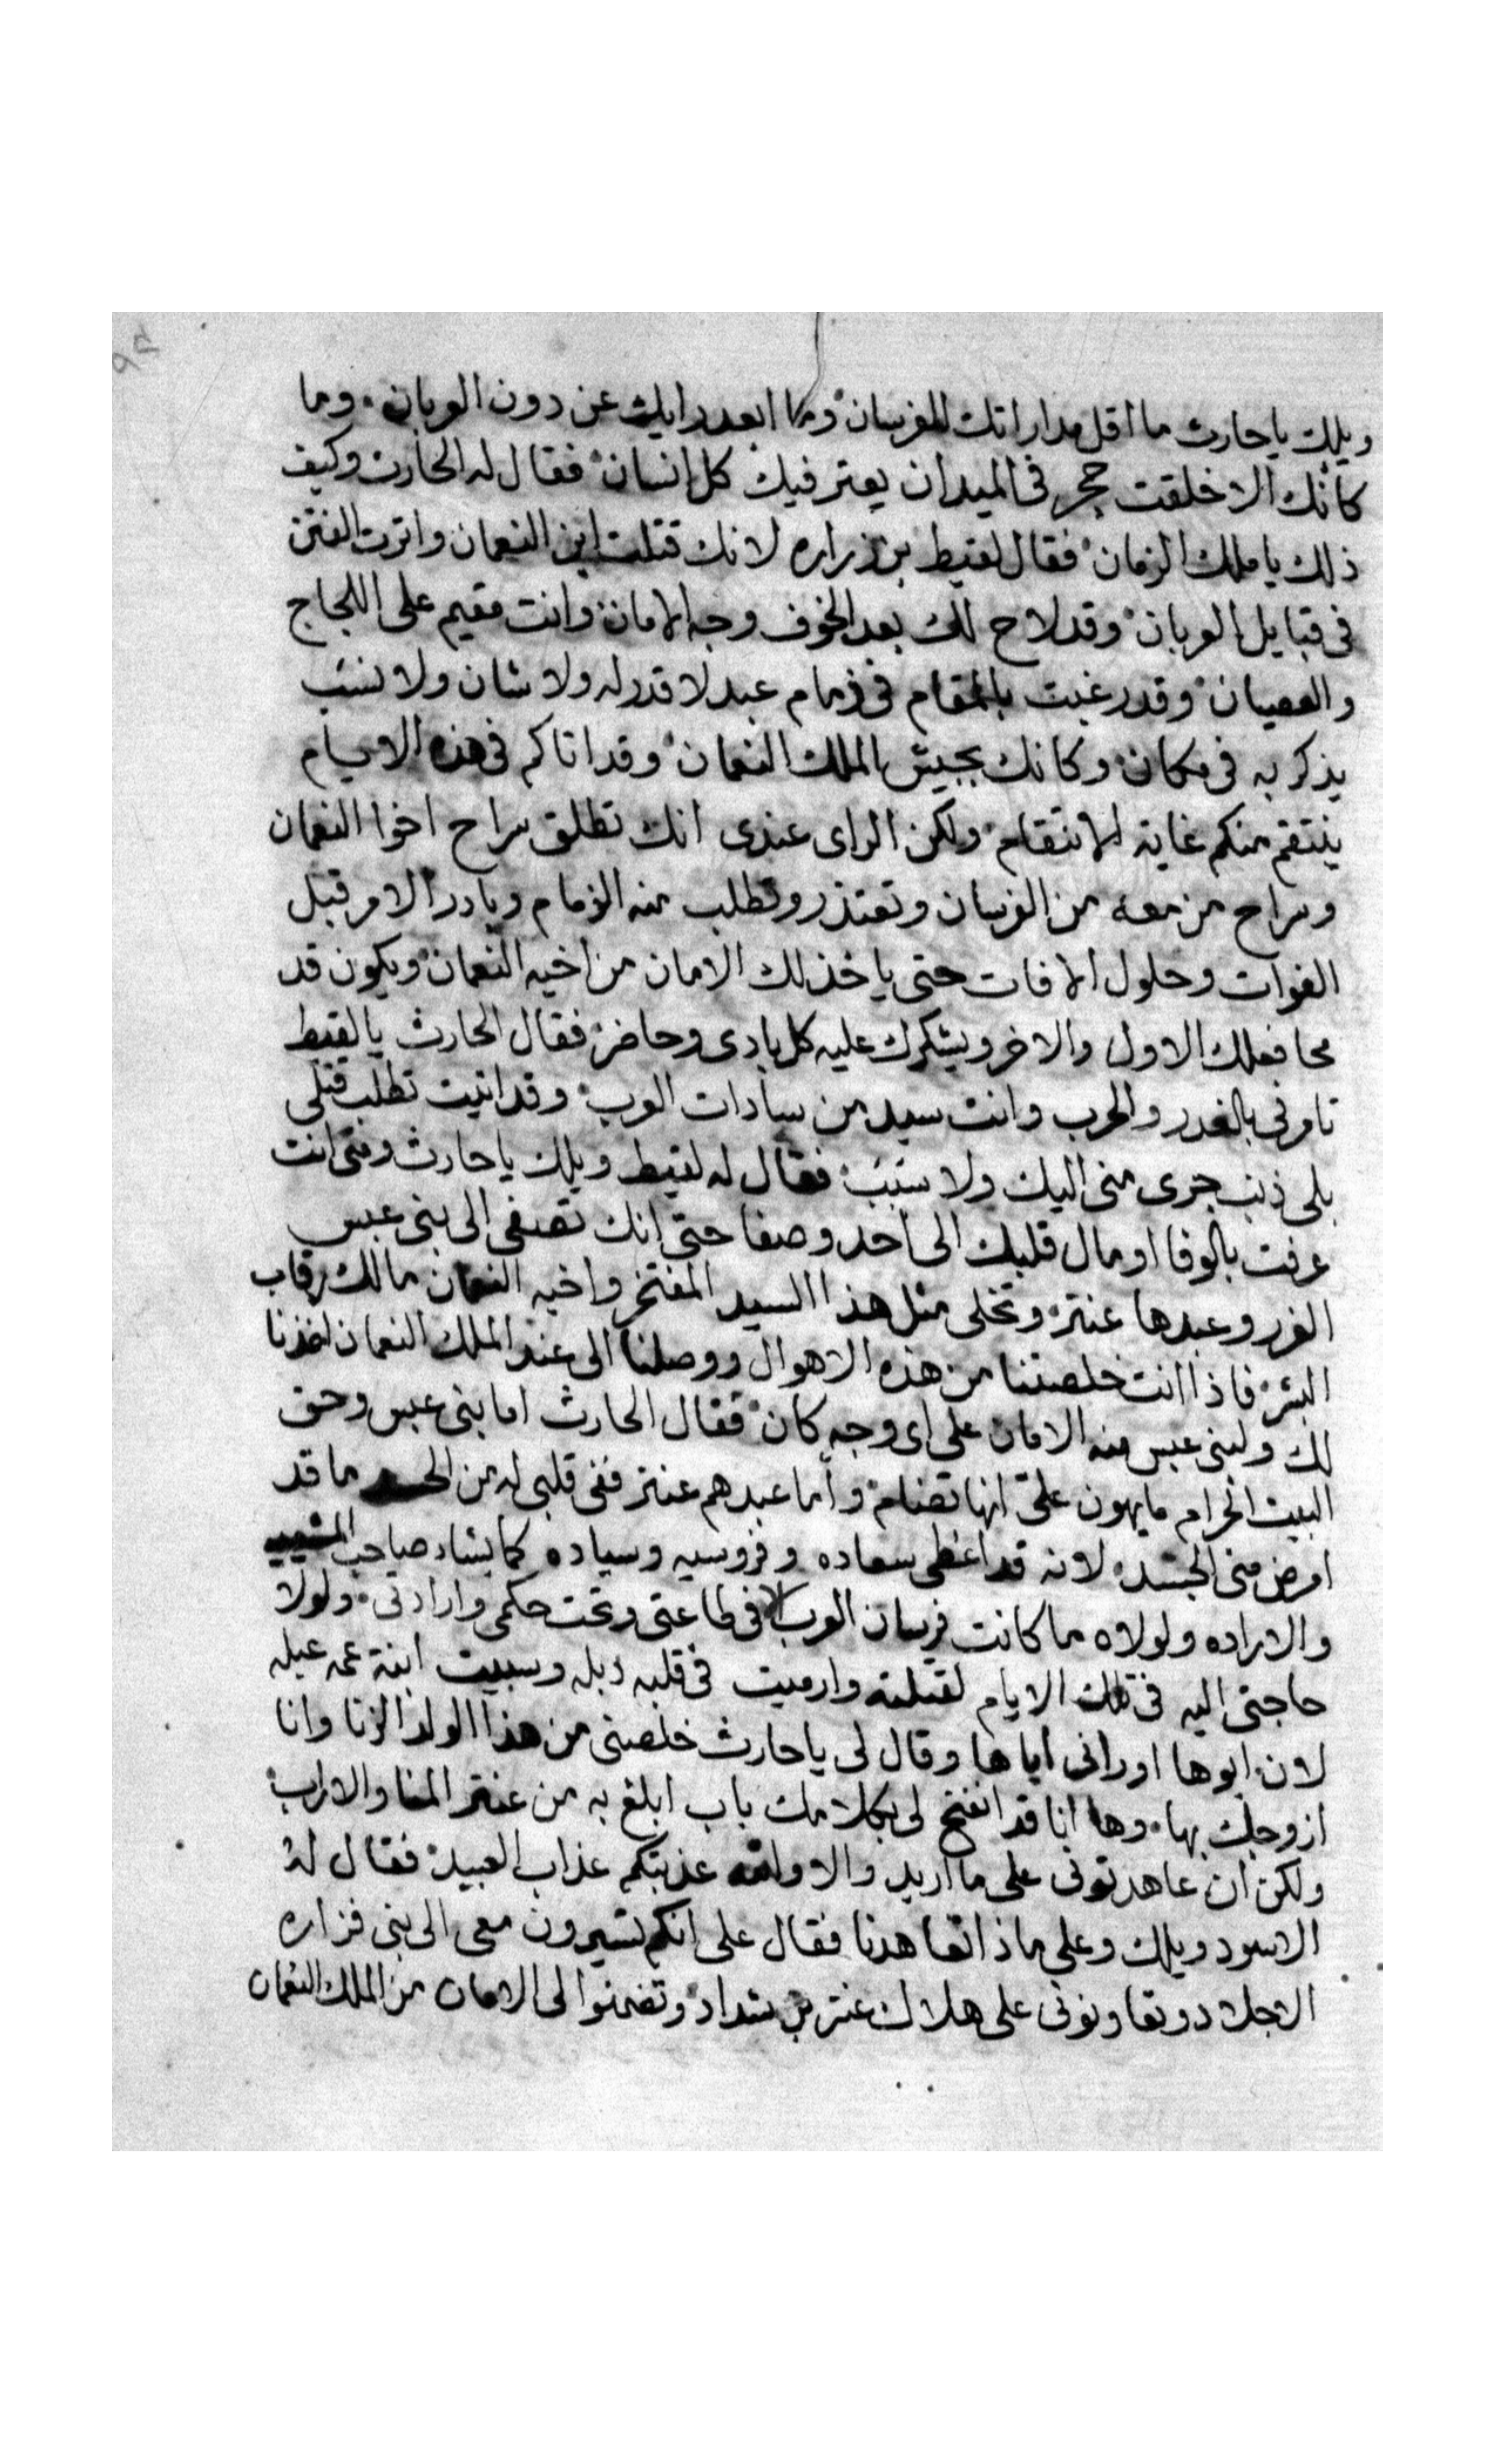 ويلك ياحارث ما اقل مداراتك للفرسان وما ابعد رايك عن دون العربان وما
كانك الا خلقت حجر في الميدان يعتر فيك كل انسان فقال له الحارث وكيف
ذلك يا ملك الزمان فقال لقيط بن زراره لانك قتلت ابن النعمان واثرت الفتن
في قبايل العربان وقد لاح لك بعد الخوف وجه الامان وانت مقيم على اللجاج
والعصيان وقد رغبت بالمقام في ذمام عبد لا قدر له ولا شان ولا نسب
يذكر به في مكان وكانك بجيش الملك النعمان وقد اتاكم في هذه الايام
ينتقم منكم غاية الانتقام ولكن الراى عندى انك تطلق سراح اخوا النعمان
وسراح من معه من الفرسان وتعتذر وتطلب منه الذمام وبادر الامر قبل
الفوات وحلول الافات حتى ياخذ لك الامان من اخيه النعمان ويكون قد
محا فعلك الاول والاخر ويشكرك عليه كل بادى وحاضر فقال الحارث يا لقيط
تامرني بالغدر والحرب وانت سيد من سادات العرب وقد اتيت تطلب قتلي
بلى ذنب جرى منى اليك ولا سبب فقال له لقيط ويلك ياحارث ومتى انت
عرفت بالوفا او مال قلبك الى احد وصفا حتى انك تصفى الى بنى عبس
الغرر وعبدها عنتر وتخلى مثل هذا السيد المفتخر واخيه النعمان مالك رقاب
البشر فاذا انت خلصتنا من هذه الاهوال ووصلنا الى عند الملك النعمان اخذنا
لك ولبنى عبس منه الامان على اى وجه كان فقال الحارث اما بنى عبس وحق
البيت الحرام ما يهون علىّ انها تضام واما عبدهم عنتر ففى قلبى له من ما قد
امرض منى الجسد لانه قد اعطى سعاده وفروسيه وسياده كما يشاء صاحب المشيه
والاراده ولولاه ما كانت فرسان العرب الا في طاعتى وتحت حكمى وارادتى ولولا
حاجتى اليه في تلك الايام لقتلته وارميت في قلبه دبله وسبيت ابنة عمه عبله
لان ابوها اورانى اياها وقال لى ياحارث خلصنى من هذا الولد الزنا وانا
ازوجك بها وها انا قد انفتح لى بكلامك باب ابلغ به من عنتر المنا والاراب
ولكن ان عاهدتونى على ما اريد والا والله عذبتكم عذاب العبيد فقال له
الاسود ويلك وعلى ماذا تعاهدنا فقال على انكم تسيرون معى الى بنى فزاره
الاجلاد وتعاونونى على هلاك عنتر بن شداد وتضمنوا لى الامان من الملك النعمان